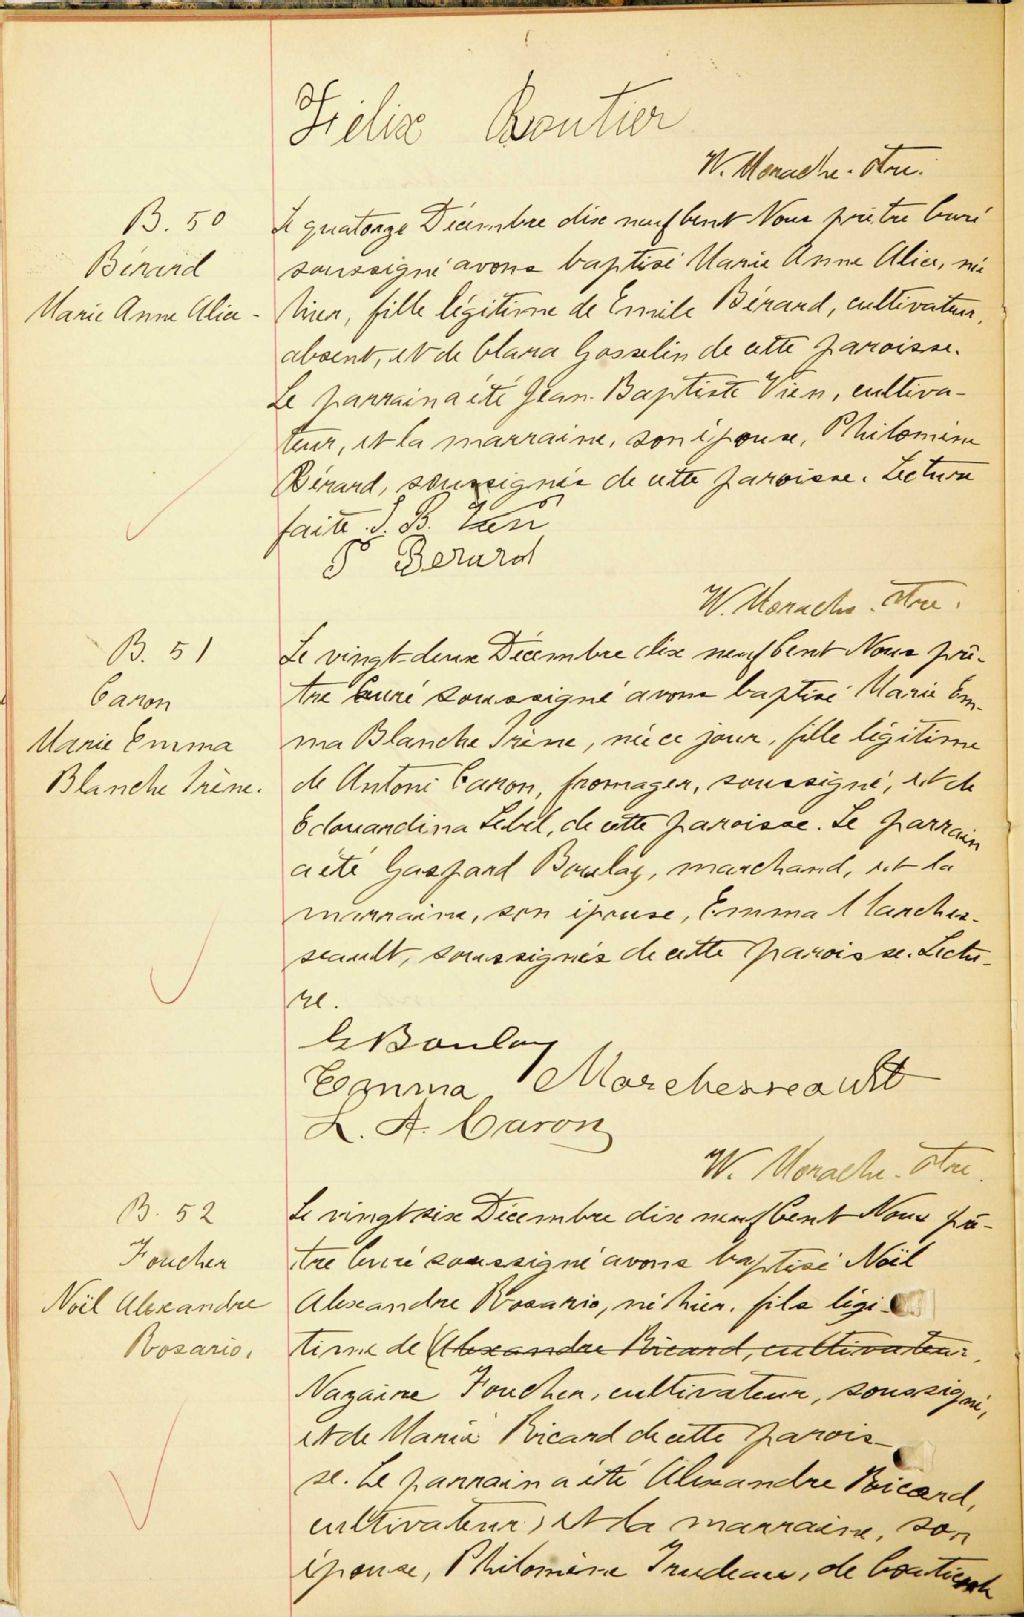 Félix Routier
W. Morache. Ptre.
B. 50
Bérard
Marie Anne Alice -
Le quatorze Décembre dix neuf Cent Nous prêtre Curé
soussigné avons baptisé Marie Anne Alice, née
hier, fille légitime de Emile Bérard, cultivateur,
absent, et de Clara Gosselin de cette paroisse.
Le parrain a été Jean-Baptiste Vien, cultiva-
teur, et la marraine, son épouse, Philomène
Bérard, soussignés de cette paroisse. Lecture
faite. J. B. Vien
P Berard
W. Morache. Ptre.
B. 51
Caron
Marie Emma
Blanche Irène.
Le vingt-deux Décembre dix neuf Cent Nous prê-
tre Curé soussigné avons baptisé Marie Em-
ma Blanche Irène, née ce jour, fille légitime
de Antoni Caron, fromager, soussigné, et de
Edouardina Lebel, de cette paroisse. Le parrain
a été Gaspard Boulay, marchand, et la
marraine, son épouse, Emma Marches-
seault, soussignés de cette paroisse. Lectu-
re.
G Boulay
Emma Marchesseault
L. A. Caron
W. Morache. Ptre.
B. 52
Foucher
Noël Alexandre
Rosario.
Le vingt six Décembre dix neuf Cent Nous prê-
tre Curé soussigné avons baptisé Noël
Alexandre Rosario, né hier, fils légi-
time de (Alexandre Ricard, cultivateur,
Nazaire Foucher, cultivateur, soussigné,
et de Maria Ricard de cette parois-
se. Le parrain a été Alexandre Ricard,
cultivateur, et la marraine, son
épouse, Philomène Trudeau, de